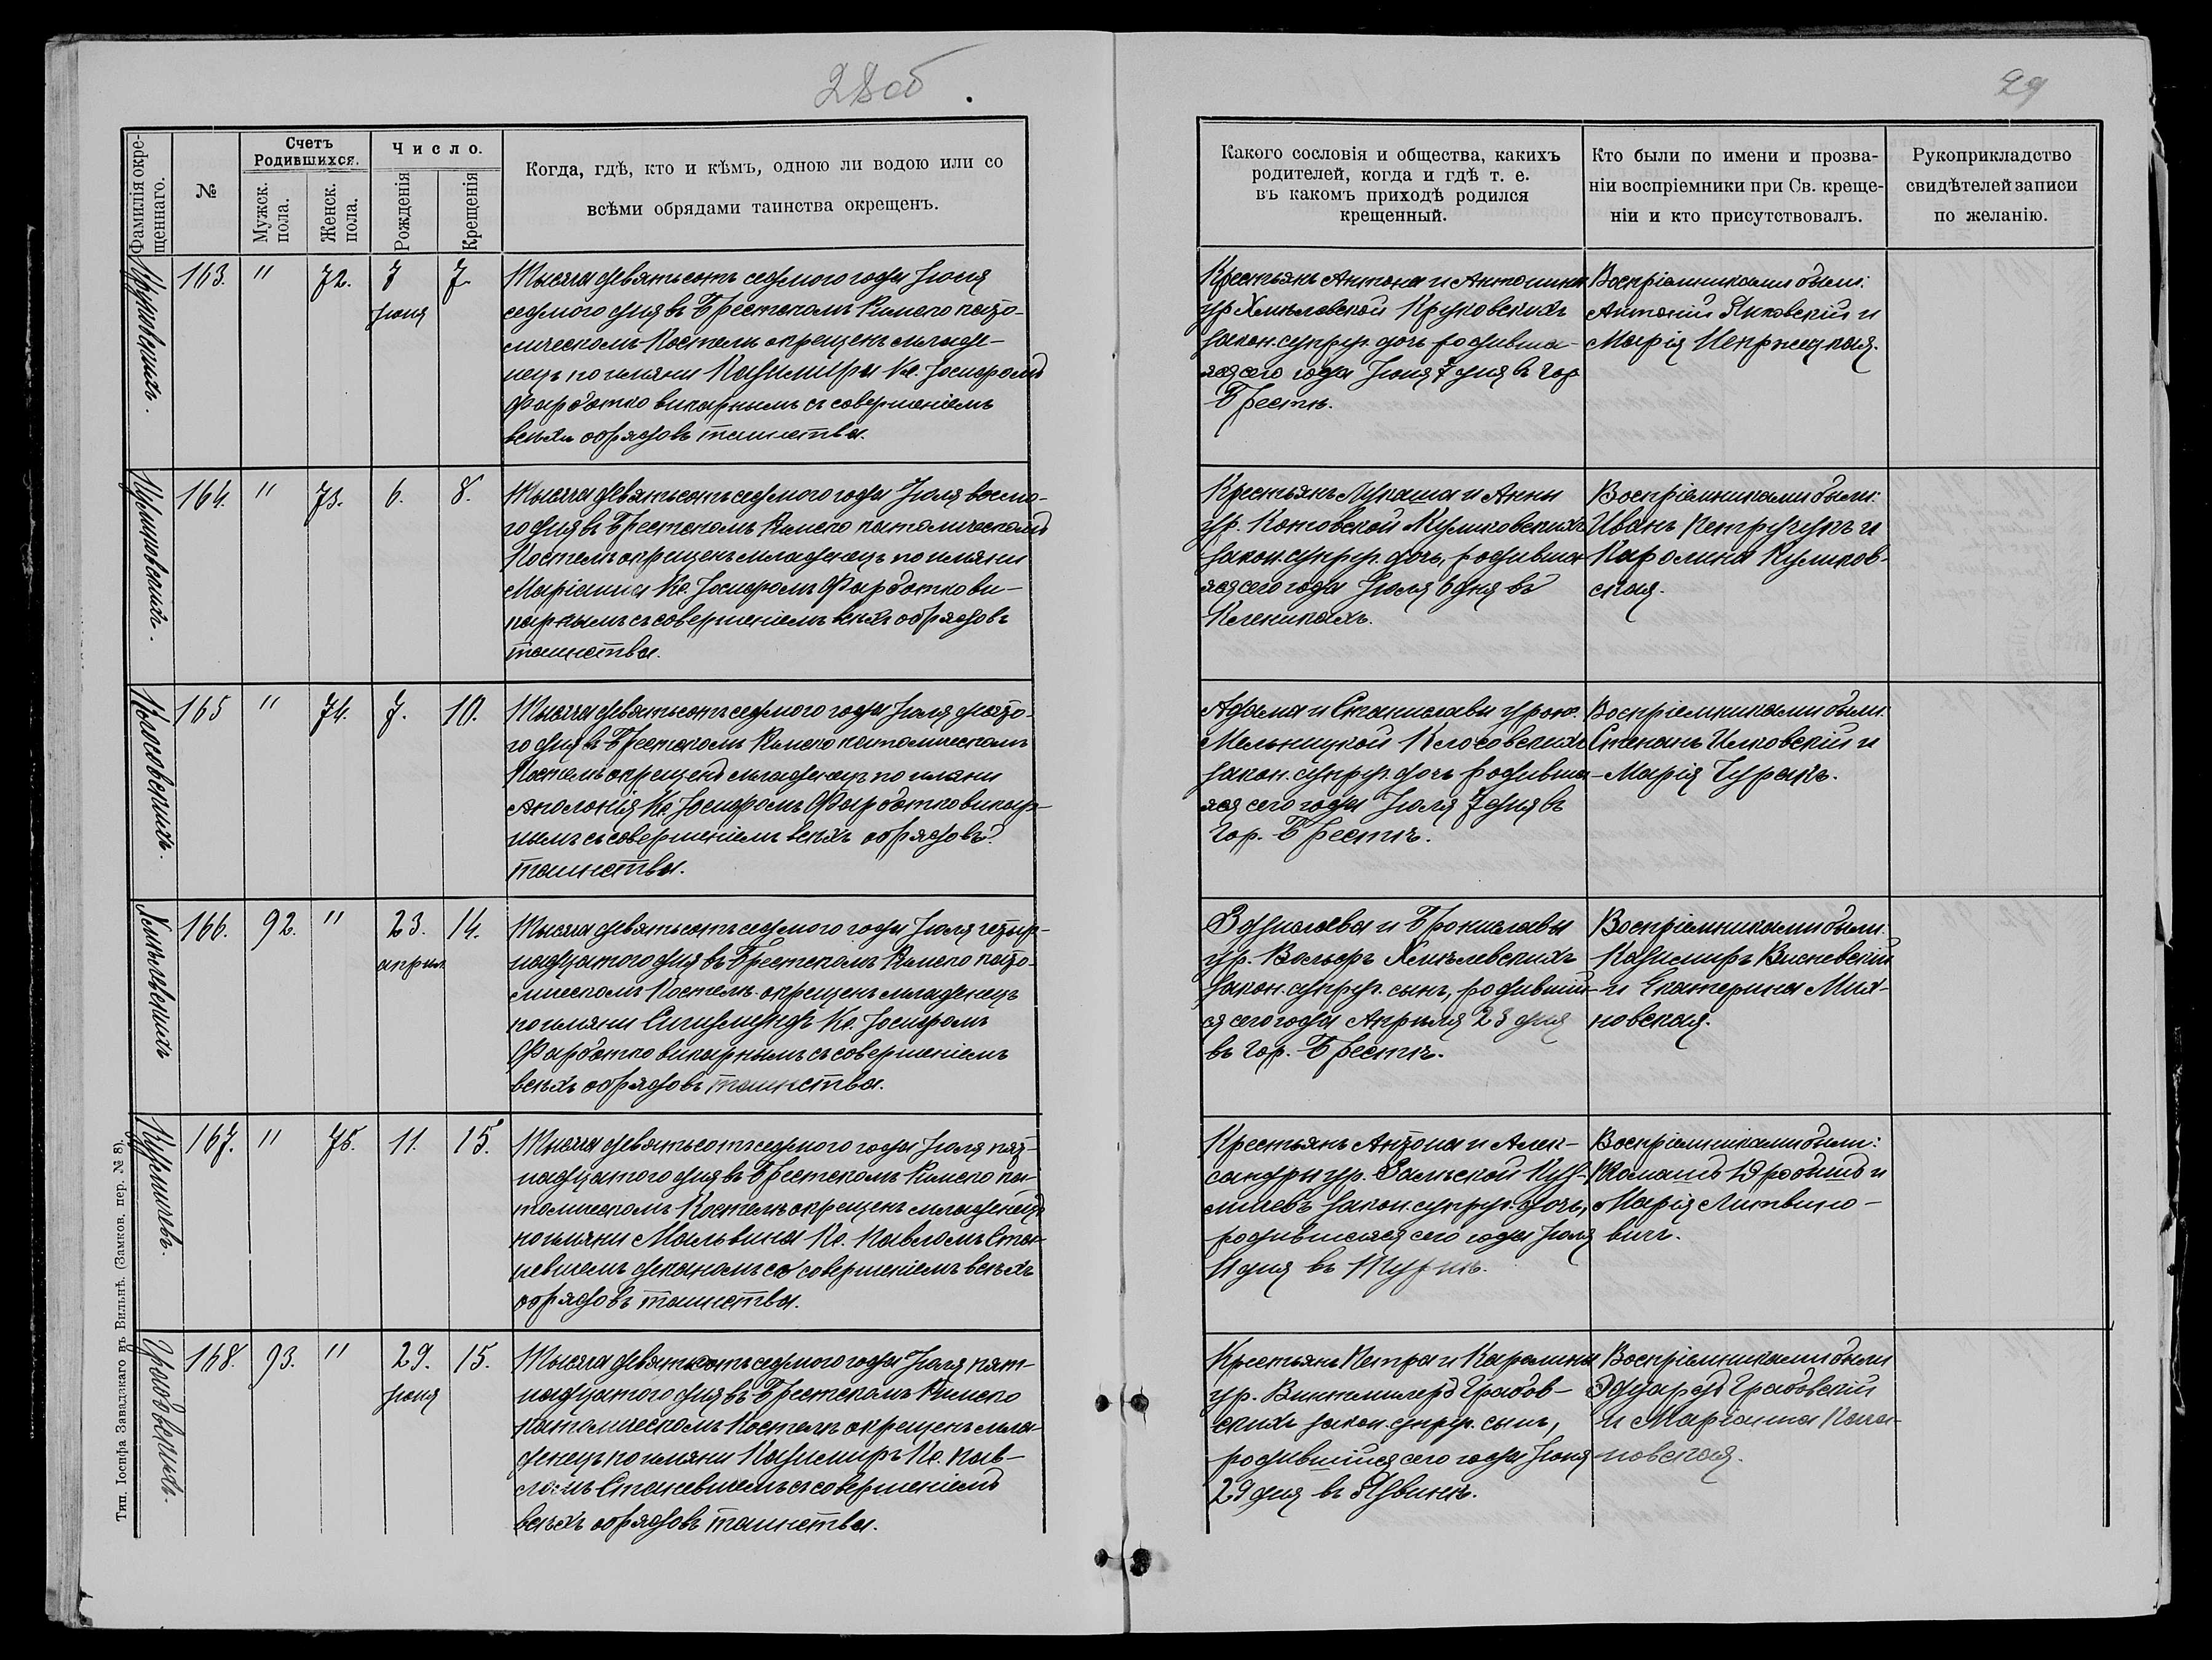 28об.
29
Фамилія окре-
щеннаго.
№
Счетъ
Родившихся.
Мужск.
пола.
Женск.
пола.
Число.
Рожденія
Крещенія
Когда, гдѣ, кто и кѣмъ, одною ли водою или со
всѣми обрядами таинства окрещенъ.
Какого сословія и общества, какихъ
родителей, когда и гдѣ т. е.
въ какомъ приходѣ родился
крещенный.
Кто были по имени и прозва-
ніи воспріемники при Св. креще-
ніи и кто присутствовалъ.
Рукоприкладство
свидѣтелей записи
по желанію.
Круковскихъ.
163. " 72. 7 7
Іюля
Тысяча девятьсотъ седмого года Іюля
седмого дня въ Брестскомъ Римско като-
лическомъ Костелѣ окрещенъ младе-
нецъ по имяни Казимира Кс. Іосифомъ
Фарботко викарнымъ съ совершеніемъ
всѣхъ обрядовъ таинства.
Крестьянъ Антона и Антонины
ур. Хмѣлевской Круковскихъ
закон. супруг. дочь родивша-
яся сего года Іюля 7 дня въ гор.
Брестѣ.
Воспріемниками были:
Антоній Янковскій и
Марія
Куликовскихъ.
164. " 73. 6. 8.
Тысяча девятьсотъ седмого года Іюля восмо-
го дня въ Брестскомъ Римско католическомъ
Костелѣ окрещенъ младенецъ по имяни
Маріанна Кс. Іосифомъ Фарботко ви-
карнымъ съ совершеніемъ всѣхъ обрядовъ
таинства.
Крестьянъ Лукаша и Анны
ур. Котовской Куликовскихъ
закон. супруг. дочь, родивша-
яся сего года Іюля 6 дня въ
Клейникахъ.
Воспріемниками были:
Иванъ Петручукъ и
Каролина Куликов-
ская.
Клосовскихъ.
165 " 74. 7. 10.
Тысяча девятьсотъ седмого года Іюля десято-
го дня въ Брестскомъ Римско католическомъ
Костелѣ окрещенъ младенецъ по имяни
Аполонія Кс. Іосифомъ Фарботко викар-
нымъ съ совершеніемъ всѣхъ обрядовъ
таинства.
Адама и Станиславы урож.
Мельницкой Клосовскихъ
закон. супруг. дочь родивша-
яся сего года Іюля 7 дня въ
гор. Брестѣ.
Воспріемниками были:
Степанъ Илковскій и
Марія Цуракъ.
Хмѣлевскихъ
166. 92. " 23. 14.
апрѣля
Тысяча девятьсотъ седмого года Іюля четыр-
надцатого дня въ Брестскомъ Римско като-
лическомъ Костелѣ окрещенъ младенецъ
по имяни Сигизмундъ Кс. Іосифомъ
Фарботко викарнымъ съ совершеніемъ
всѣхъ обрядовъ таинства.
Здзислава и Брониславы
ур. Вольфъ Хмѣлевскихъ
закон. супруг. сынъ, родивший-
ся сего года Апрѣля 23 дня
въ гор. Брестѣ.
Воспріемниками были:
Казимиръ Висневскій
и Екатерина Мих-
новская.
167. " 75. 11. 15.
Тысяча девятьсотъ седмого года Іюля пят-
надцатого дня въ Брестскомъ Римско ка-
толическомъ Костелѣ окрещенъ младенецъ
по имяни Мальвина Кс. Павломъ Ста-
невичемъ деканомъ со совершеніемъ всѣхъ
обрядовъ таинства.
Крестьянъ Антона и Алек-
сандры ур.
закон. супруг. дочь,
родившаяся сего года Іюля
11 дня въ
Воспріемниками были:
и
Марія Литвино-
вичъ.
Грабовскихъ.
168. 93. " 29. 15.
Іюня
Тысяча девятьсотъ седмого года Іюля пят-
надцатого дня въ Брестскомъ Римско
католическомъ Костелѣ окрещенъ мла-
денецъ по имяни Казимиръ Кс. Пав-
ломъ Станевичемъ съ совершеніемъ
всѣхъ обрядовъ таинства.
Крестьянъ Петра и Каролины
ур. Винтмиллеръ Грабов-
скихъ закон. супруг. сынъ,
родившійся сего года Іюня
29 дня въ
Воспріемниками были
Эдуардъ Грабовскій
и Маріанна
Тип. Іосифа Завадзкаго въ Вильнѣ. (Замков. пер. № 8).